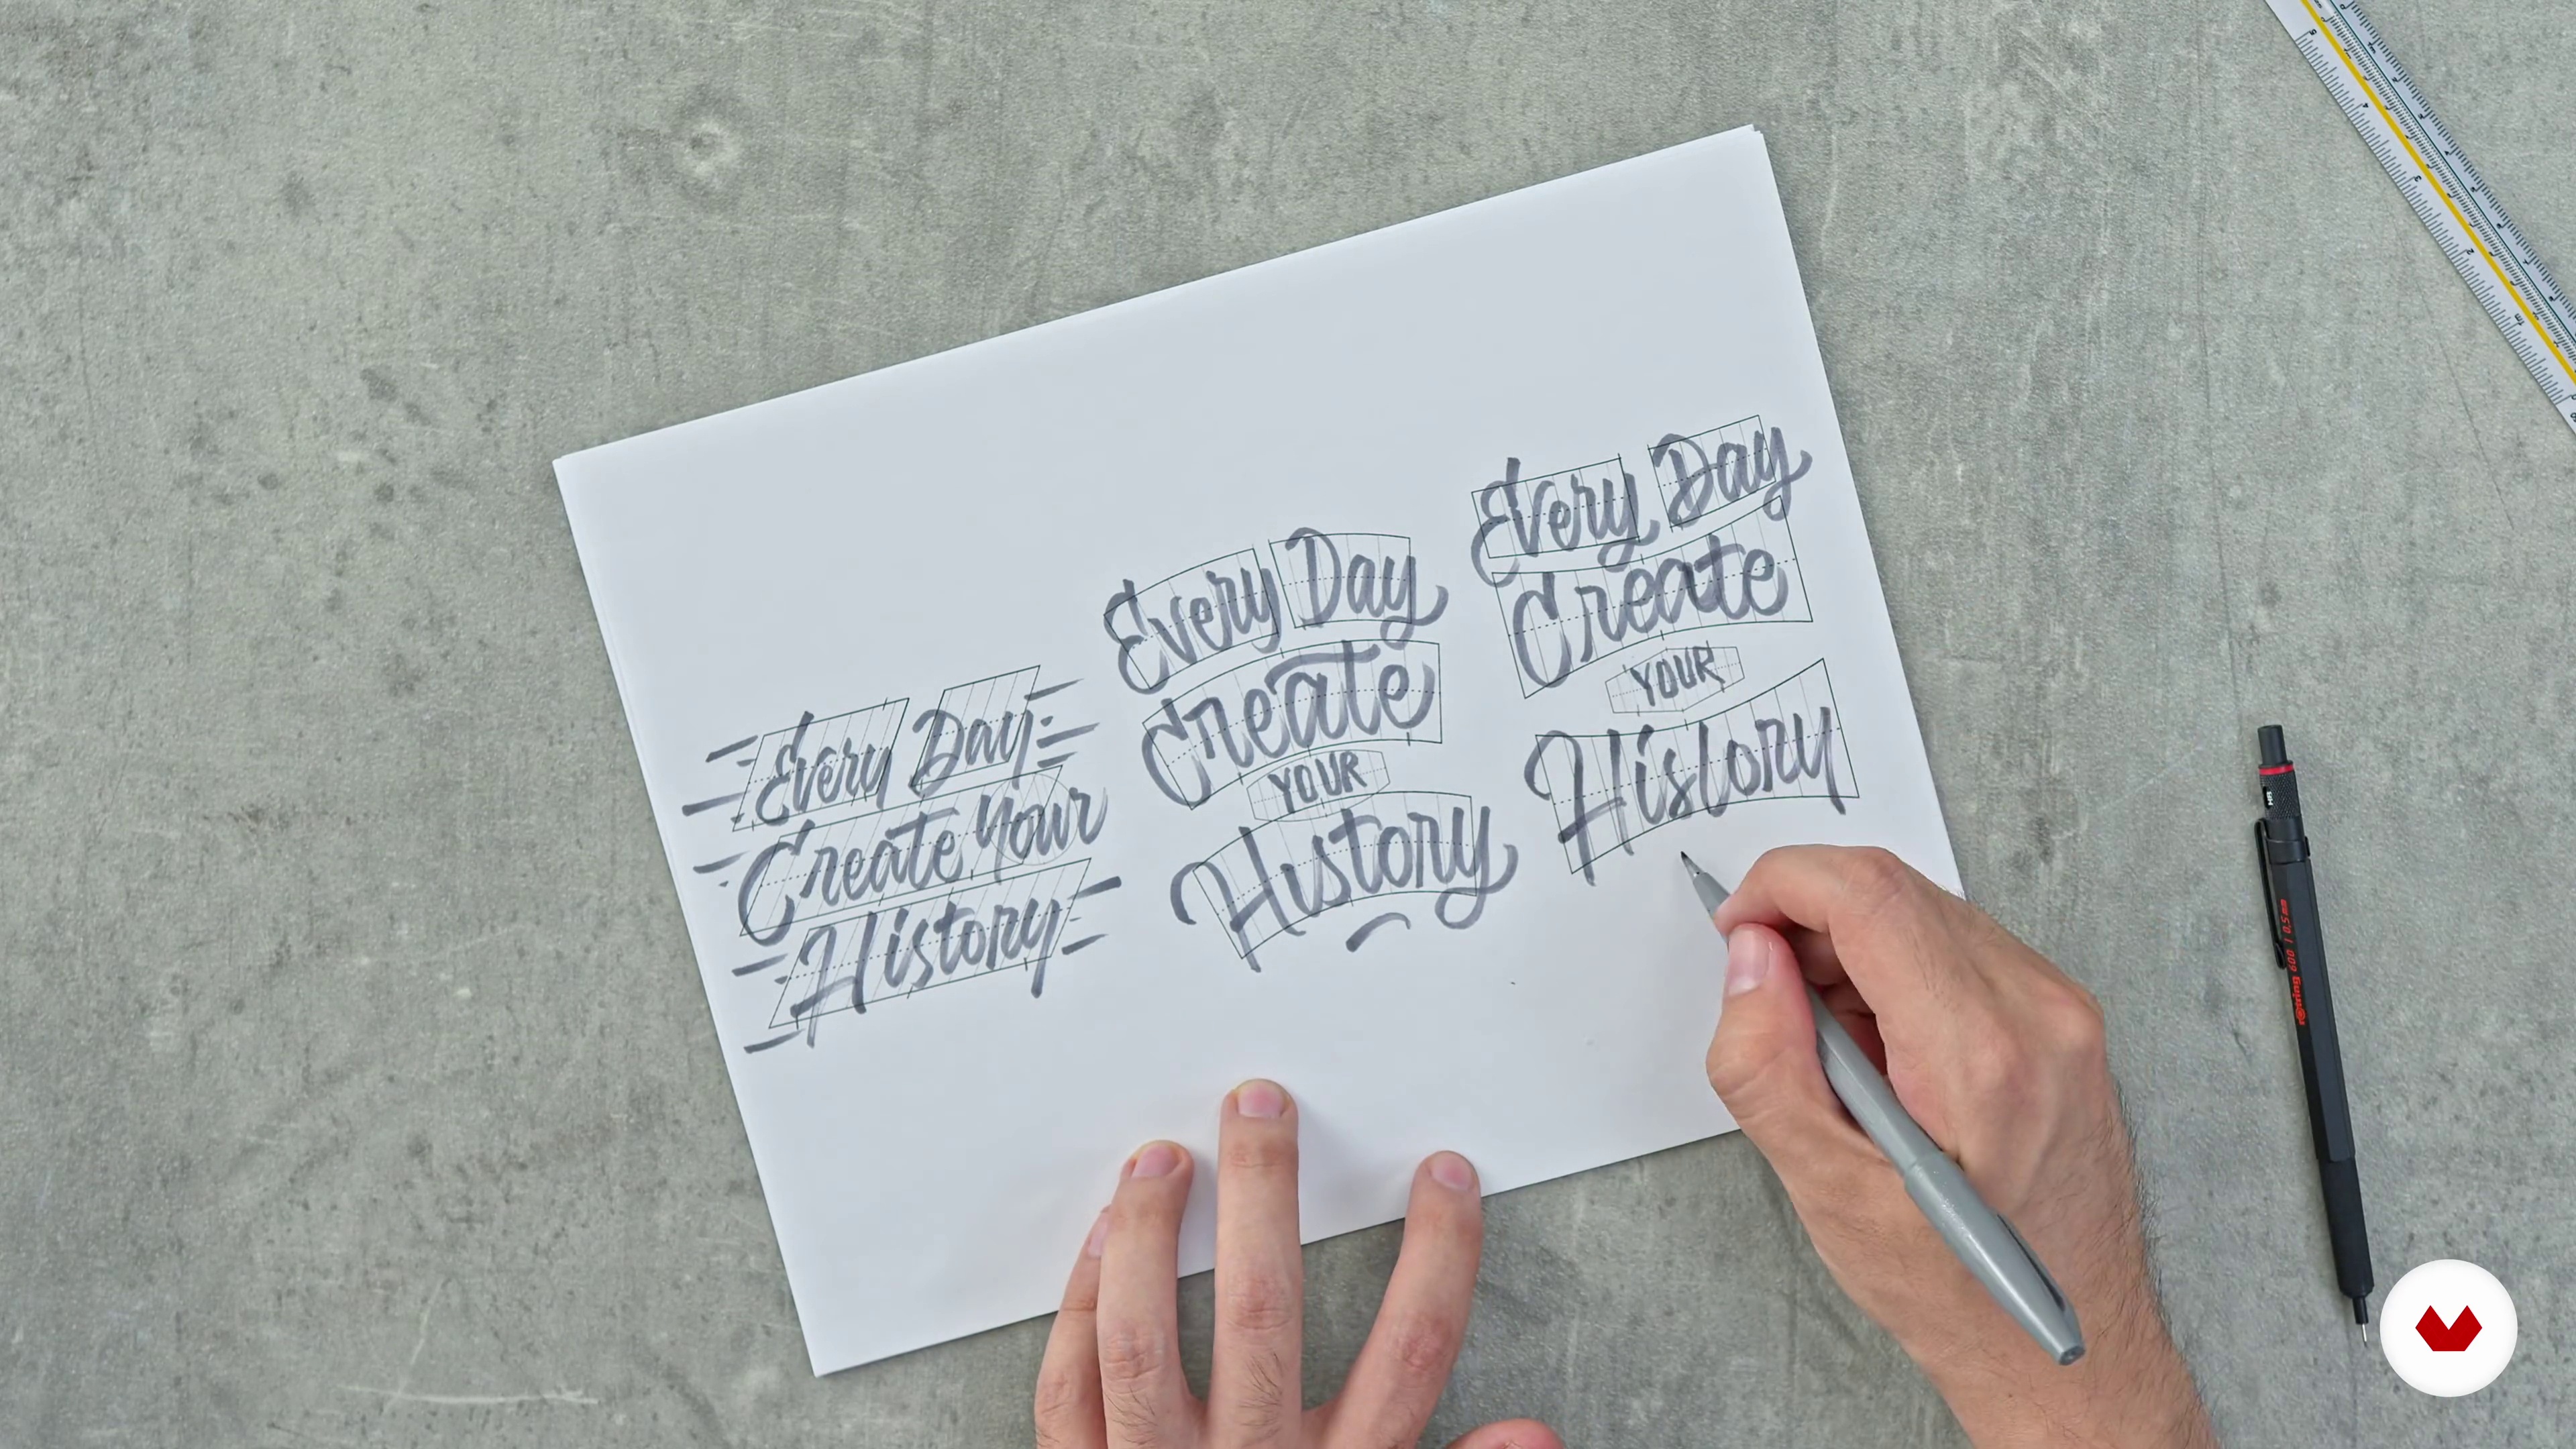 Every Day
Create Your
History
Every Day
Create
YOUR
History
Every Day
Create
YOUR
History
rotring 600 | 0,5 mm